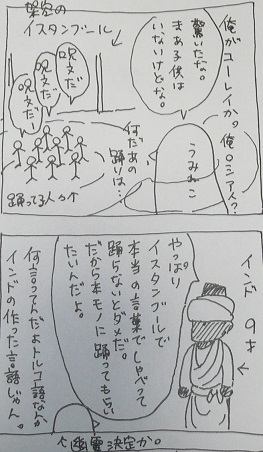 架空の
イスタンブール
俺がコーレイか。俺ロシア人？
驚いたな。
まあ子供は
いないけどな。
呪えだ
呪えだ
呪えだ
うみねこ
何だあの
踊りは…
踊ってる人々
インド
の才
やっぱり
イスタンブールで
本当の言葉でしゃべって
踊らないとダメだ。
だから本モノに踊ってもらい
たいんだよ。
何言ってんだよトルコ語なんか
インドの作った言語じゃん。
幽霊決定か。